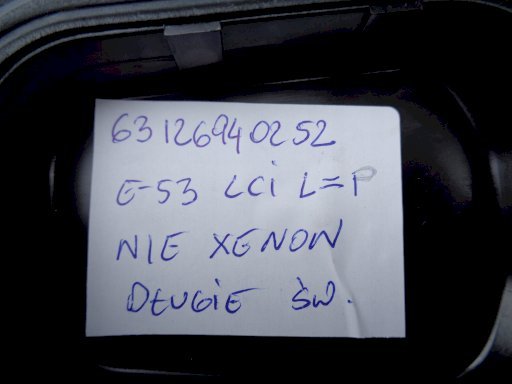 63126940252
E-53 LCi L=P
NIE XENON
DŁUGiE ŚW.